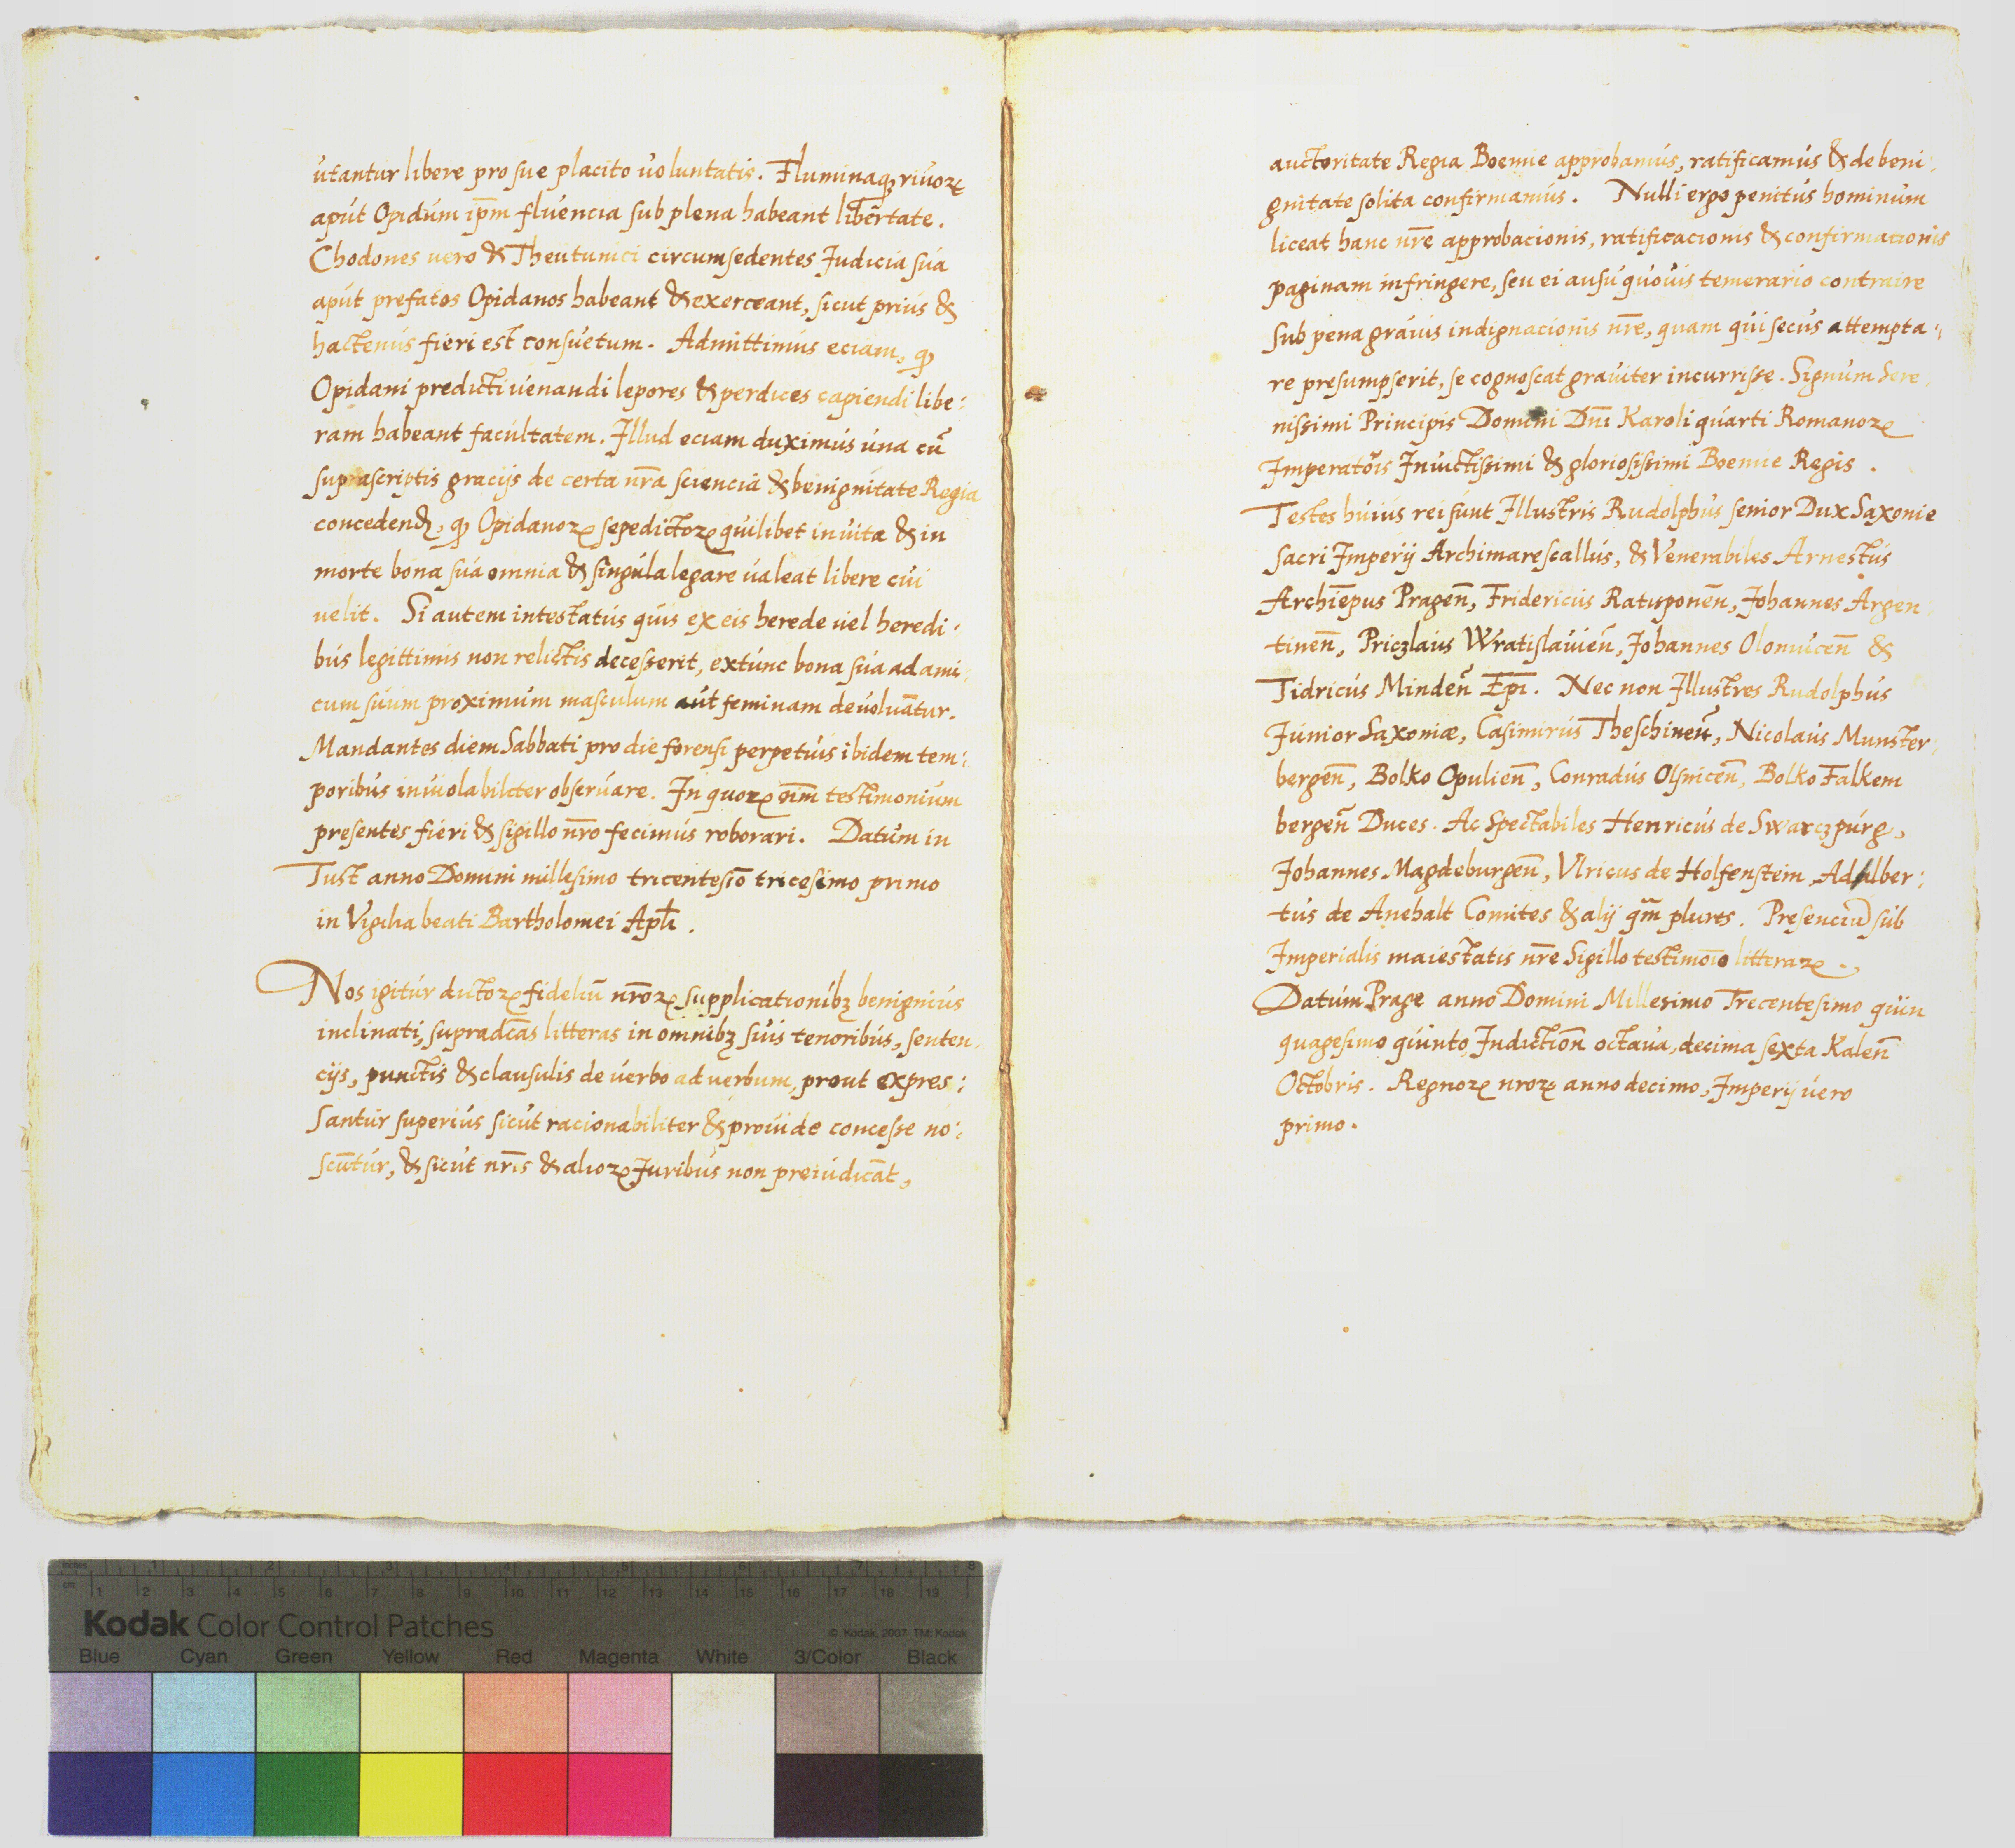 utantur libere pro sue placito uoluntatis. Fluminaqꝫ riuoꝝ
aput Opidum ip̅m fluencia sub plena habeant libertate.
Chodones uero & Theutunici circumsedentes Judicia sua
aput prefatos Opidanos habeant & exerceant, sicut prius &
hactenus fieri est consuetum. Admittimus eciam, ꝙ
Opidani predicti uenandi lepores & perdices capiendi libe:
ram habeant facultatem. Illud eciam duximus una cū
suprascriptis gracijs de certa nr̅a sciencia & benignitate Regia
concedend, ꝙ Opidanoꝝ sepedictoꝝ quilibet in uita & in
morte bona sua omnia & singula legare ualeat libere cui
uelit. Si autem intestatus quis ex eis herede uel heredi-
bus legittimis non relictis decesserit, extunc bona sua ad ami:
cum suum proximum masculum aut feminam deuoluātur.
Mandantes diem Sabbati pro die forensi perpetuis ibidem tem:
poribus inuiolabiliter obseruare. In quoꝝ oīm testimonium
presentes fieri & sigillo nr̅o fecimus roborari. Datum in
Tust anno Domini millesimo tricentesīo tricesimo primo
in Vigilia beati Bartholomei Apl̅i.
Nos igitur dictoꝝ fideliū nr̅oꝝ supplicationibꝫ benignius
inclinati, supradc̅as litteras in omnibꝫ suis tenoribus, senten:
cijs, punctis & clausulis de uerbo ad uerbum, prout expres:
santur superius sicut racionabiliter & prouide concesse no:
scūtur, & sicut nr̅is & alioꝝ Juribus non preiudicāt,
auctoritate Regia Boemie approbamus, ratificamus & de beni:
gnitate solita confirmamus. Nulli ergo penitus hominum
liceat hanc nr̅e approbacionis, ratificacionis & confirmationis
paginam infringere, seu ei ausu quouis temerario contraire
sub pena grauis indignacionis nr̅e, quam qui secus attempta:
re presumpserit, se cognoscat grauiter incurrisse. Signum Sere:
nissimi Principis Domini Dn̅i Karoli quarti Romanoꝝ
Imperatōis Inuictissimi & gloriosissimi Boemie Regis.
Testes huius rei sunt Illustris Rudolphus senior Dux Saxonie
sacri Imperij Archimarescallus, & Venerabiles Arnestus
Archīepus Pragen̅, Fridericus Ratisponen̅, Johannes Argen:
tinen̅, Priczlaus Wratislauien̅, Johannes Olomucen̅ &
Tidricus Minden̅ Ep̅i. Nec non Illustres Rudolphus
Junior Saxoniæ, Casimirus Theschinen̅, Nicolaus Munster:
bergen̅, Bolko Opulien̅, Conradus Olsnicen̅, Bolko Falkem
bergen̅ Duces. Ac Spectabiles Henricus de Swarczpurg,
Johannes Magdeburgen̅, Vlricus de Holfenstein, Adalber:
tus de Anehalt Comites & alij qm̅ plures. Presenciū sub
Imperialis maiestatis nr̅e Sigillo testimōio litteraꝝ.
Datum Prage anno Domini Millesimo Trecentesimo quin
quagesimo quinto, Indiction̅ octaua, decima sexta Kalen̅
Octobris. Regnoꝝ nroꝝ anno decimo, Imperij uero
primo.
inches 1 2 3 4 5 6 7 8
cm 1 2 3 4 5 6 7 8 9 10 11 12 13 14 15 16 17 18 19
Kodak Color Control Patches
© Kodak, 2007 TM: Kodak
Blue Cyan Green Yellow Red Magenta White 3/Color Black